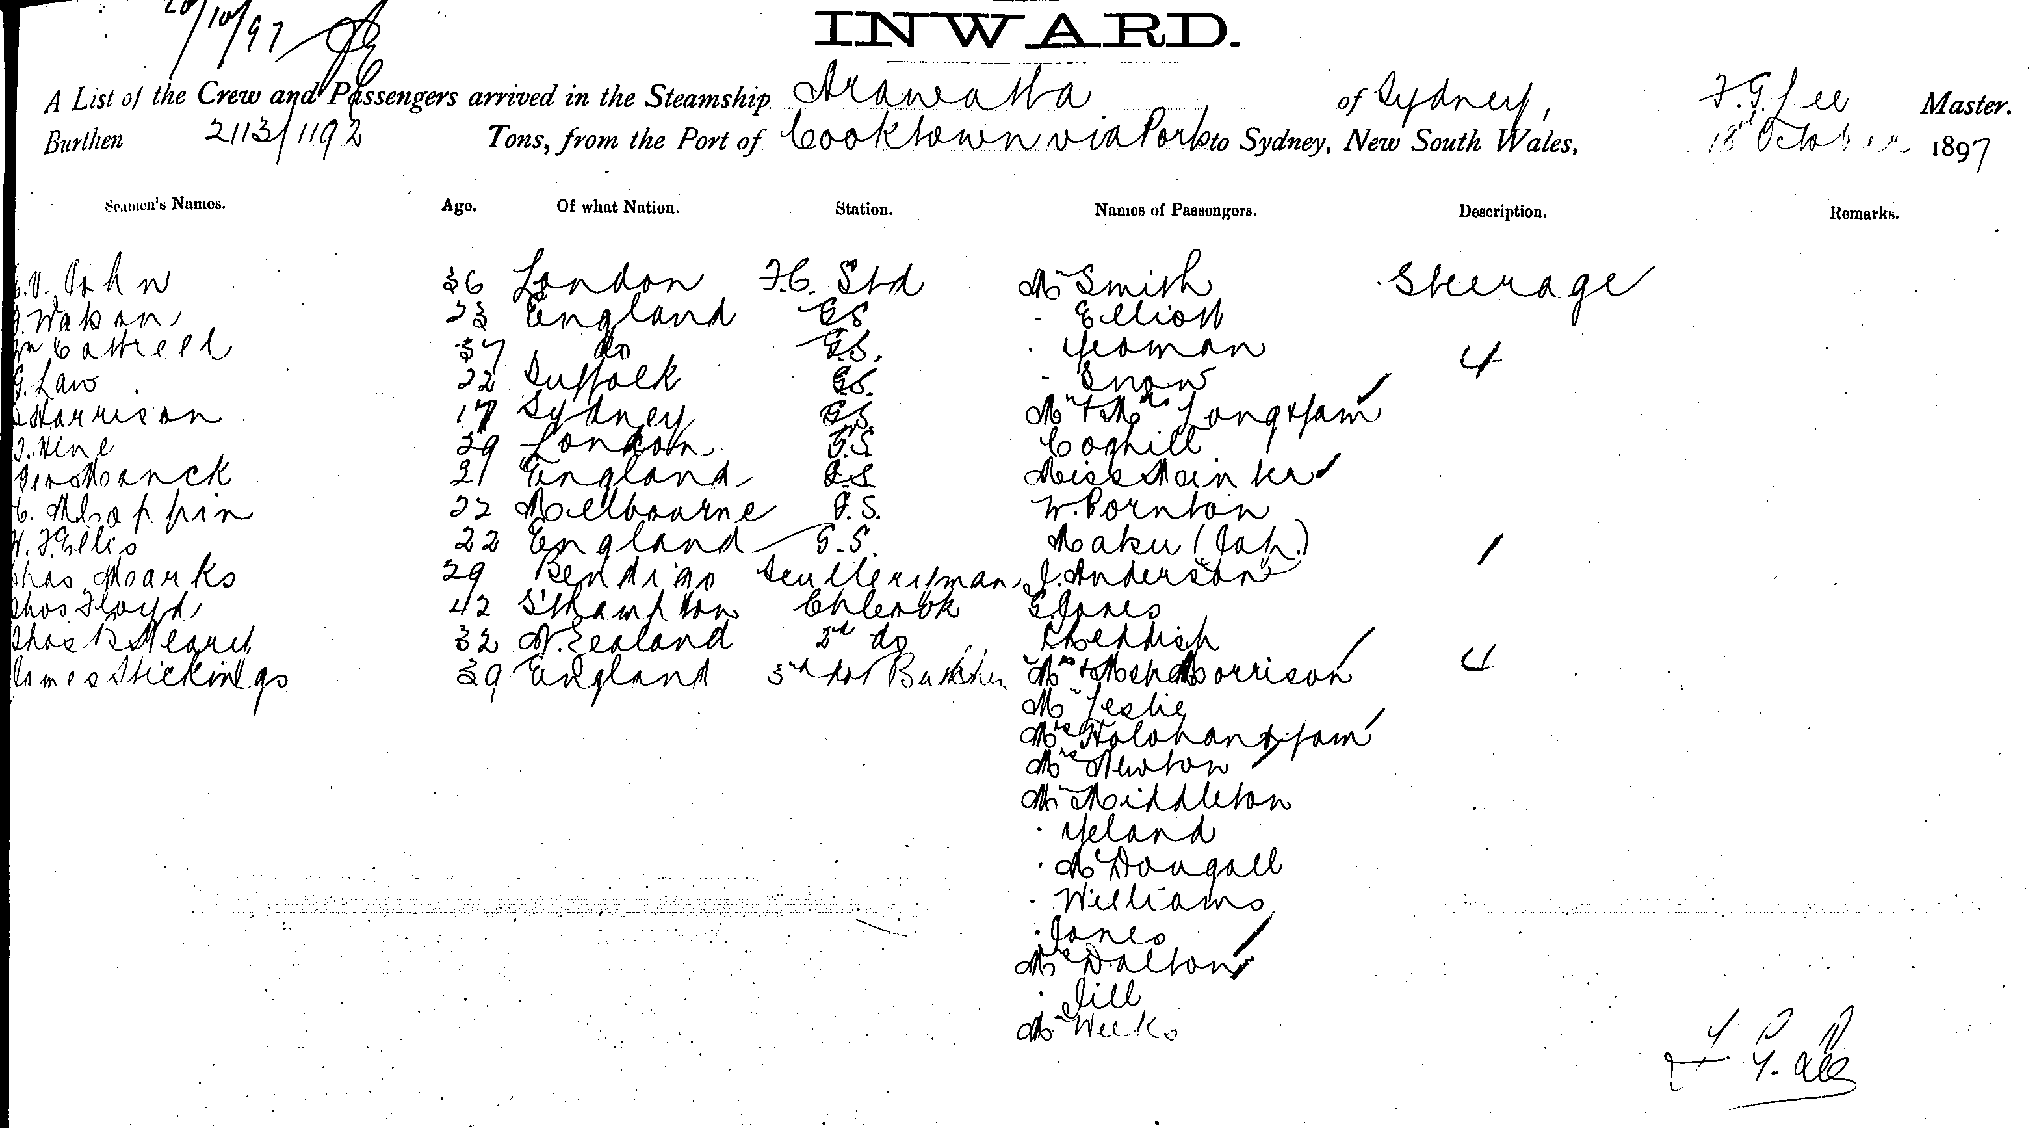 20/10/97
INWARD.
A List of the Crew and Passengers arrived in the Steamship Arawatta of Sydney, F. G. Lee Master.
Burthen 2113/1192 Tons, from the Port of Cooktown via Ports to Sydney, New South Wales, 18 October 1897
Seamen's Names. Age. Of what Nation. Station. Names of Passengers. Description. Remarks.
John 36 London F.C. Std Mr Smith Steerage
23 England GS " Elliott
Cottrell 37 do G.S. " Yeoman 4
G. Law 22 Suffolk GS. " Snow
Harrison 17 Sydney GS. Mr & Mrs Long & fam
29 London G.S. Coghill
21 England G.S Miss
C. 22 Melbourne G.S. W. Pornton
H. F. Ellis 22 England G.S. Maku (Jap.) 1
Chas Marks 29 Bendigo Sculleryman J. Anderson
Thos Floyd 42 S'thampton Ch Cook G. Jones
32 N. Zealand 2nd do Cheddish
James Stickings 39 England 3rd do & Butcher Mr & Mrs Morrison 4
Mr Leslie
Mrs Holohan & fam
Mrs Newton
Mr Middleton
" Yeland
" McDougall
" Williams
" Jones
Mrs Dalton
" Gill
Mr Weeks